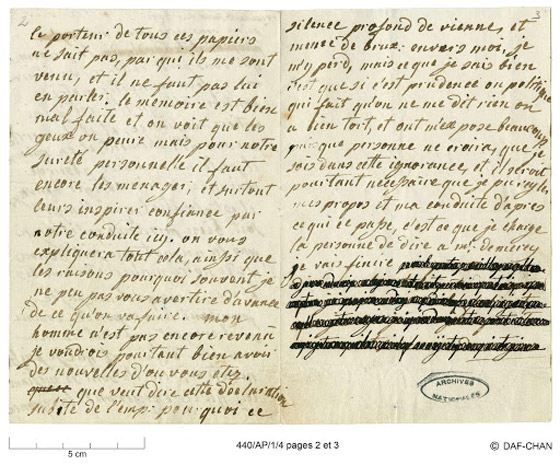 2
le porteur de tous ces papiers
ne sait pas, par qui ils me sont
venu, et il ne faut pas lui
en parler. le memoire est bien
mal faite et on voit que les
geux on peure mais pour notre
sureté personnelle il faut
encore les menager, et surtout
leurs inspirer confiance par
notre conduite icy. on vous
expliquera tout cela, ainsi que
les raisons pourquoi souvent je
ne peu pas vous avertire d'avance
de ce qu'on va faire. mon
homme n'est pas encore revenu
je voudrois pourtant bien avoir
des nouvelles d'ou vous etez.
que veut dire cette declaration
subite de l'emp: pourquoi ce
3
silence profond de vienne, et
meme de brux: envers moi, je
m'y perd, mais ce que je sais bien
c'est que si c'est prudence ou politique
qui fait qu'on ne me dit rien on
a bien tort, et on m'expose beaucoup
puisque personne ne croira, que je
sois dans cette ignorance, et il seroit
pourtant necessaire que je puisse regler
mes propos et ma conduite d'apres
ce qui ce passe, c'est ce que je charge
la personne de dire a mr. de mercy
je vais finire
ARCHIVES
NATIONALES
5 cm
440/AP/1/4 pages 2 et 3
© DAF-CHAN